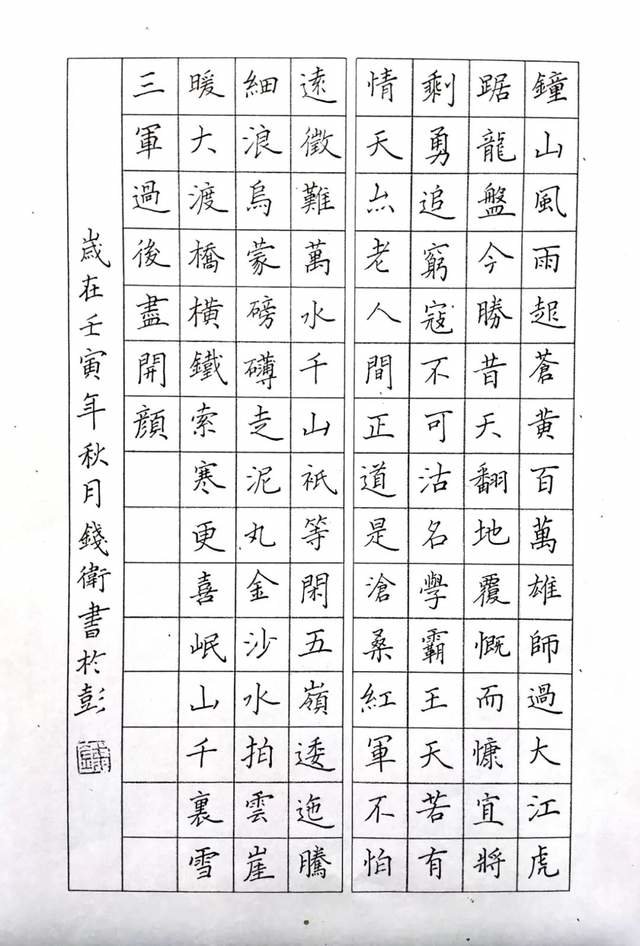 鐘山風雨起蒼黃百萬雄師過大江虎
踞龍盤今勝昔天翻地覆慨而慷宜將
剩勇追窮寇不可沽名學霸王天若有
情天亦老人間正道是滄桑紅軍不怕
遠徵難萬水千山祇等閑五嶺逶迤騰
細浪烏蒙磅礴走泥丸金沙水拍雲崖
暖大渡橋橫鐵索寒更喜岷山千裏雪
三軍過後盡開顏
歲在壬寅年秋月錢衛書於彭